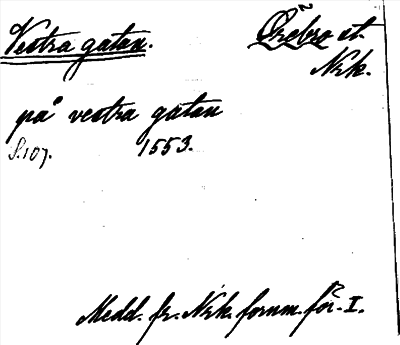 Vestra gatan. Örebro st.
Nrk.
på vestra gatan
S. 107. 1553.
Medd. fr. Nrk. fornm. för. I.